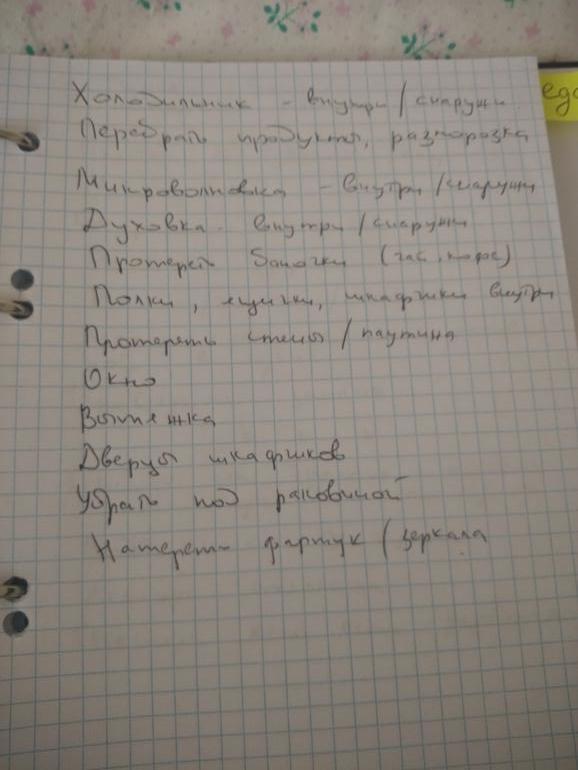 Холодильник - внутри / снаружи
Перебрать продукты, разморозка
Микроволновка - внутри / снаружи
Духовка - внутри / снаружи
Протереть баночки (чай, кофе)
Полки, ящички, шкафчики внутри
Протереть стены / паутина
Окно
Вытяжка
Дверцы шкафчиков
Убрать под раковиной
Натереть фартук / зеркала